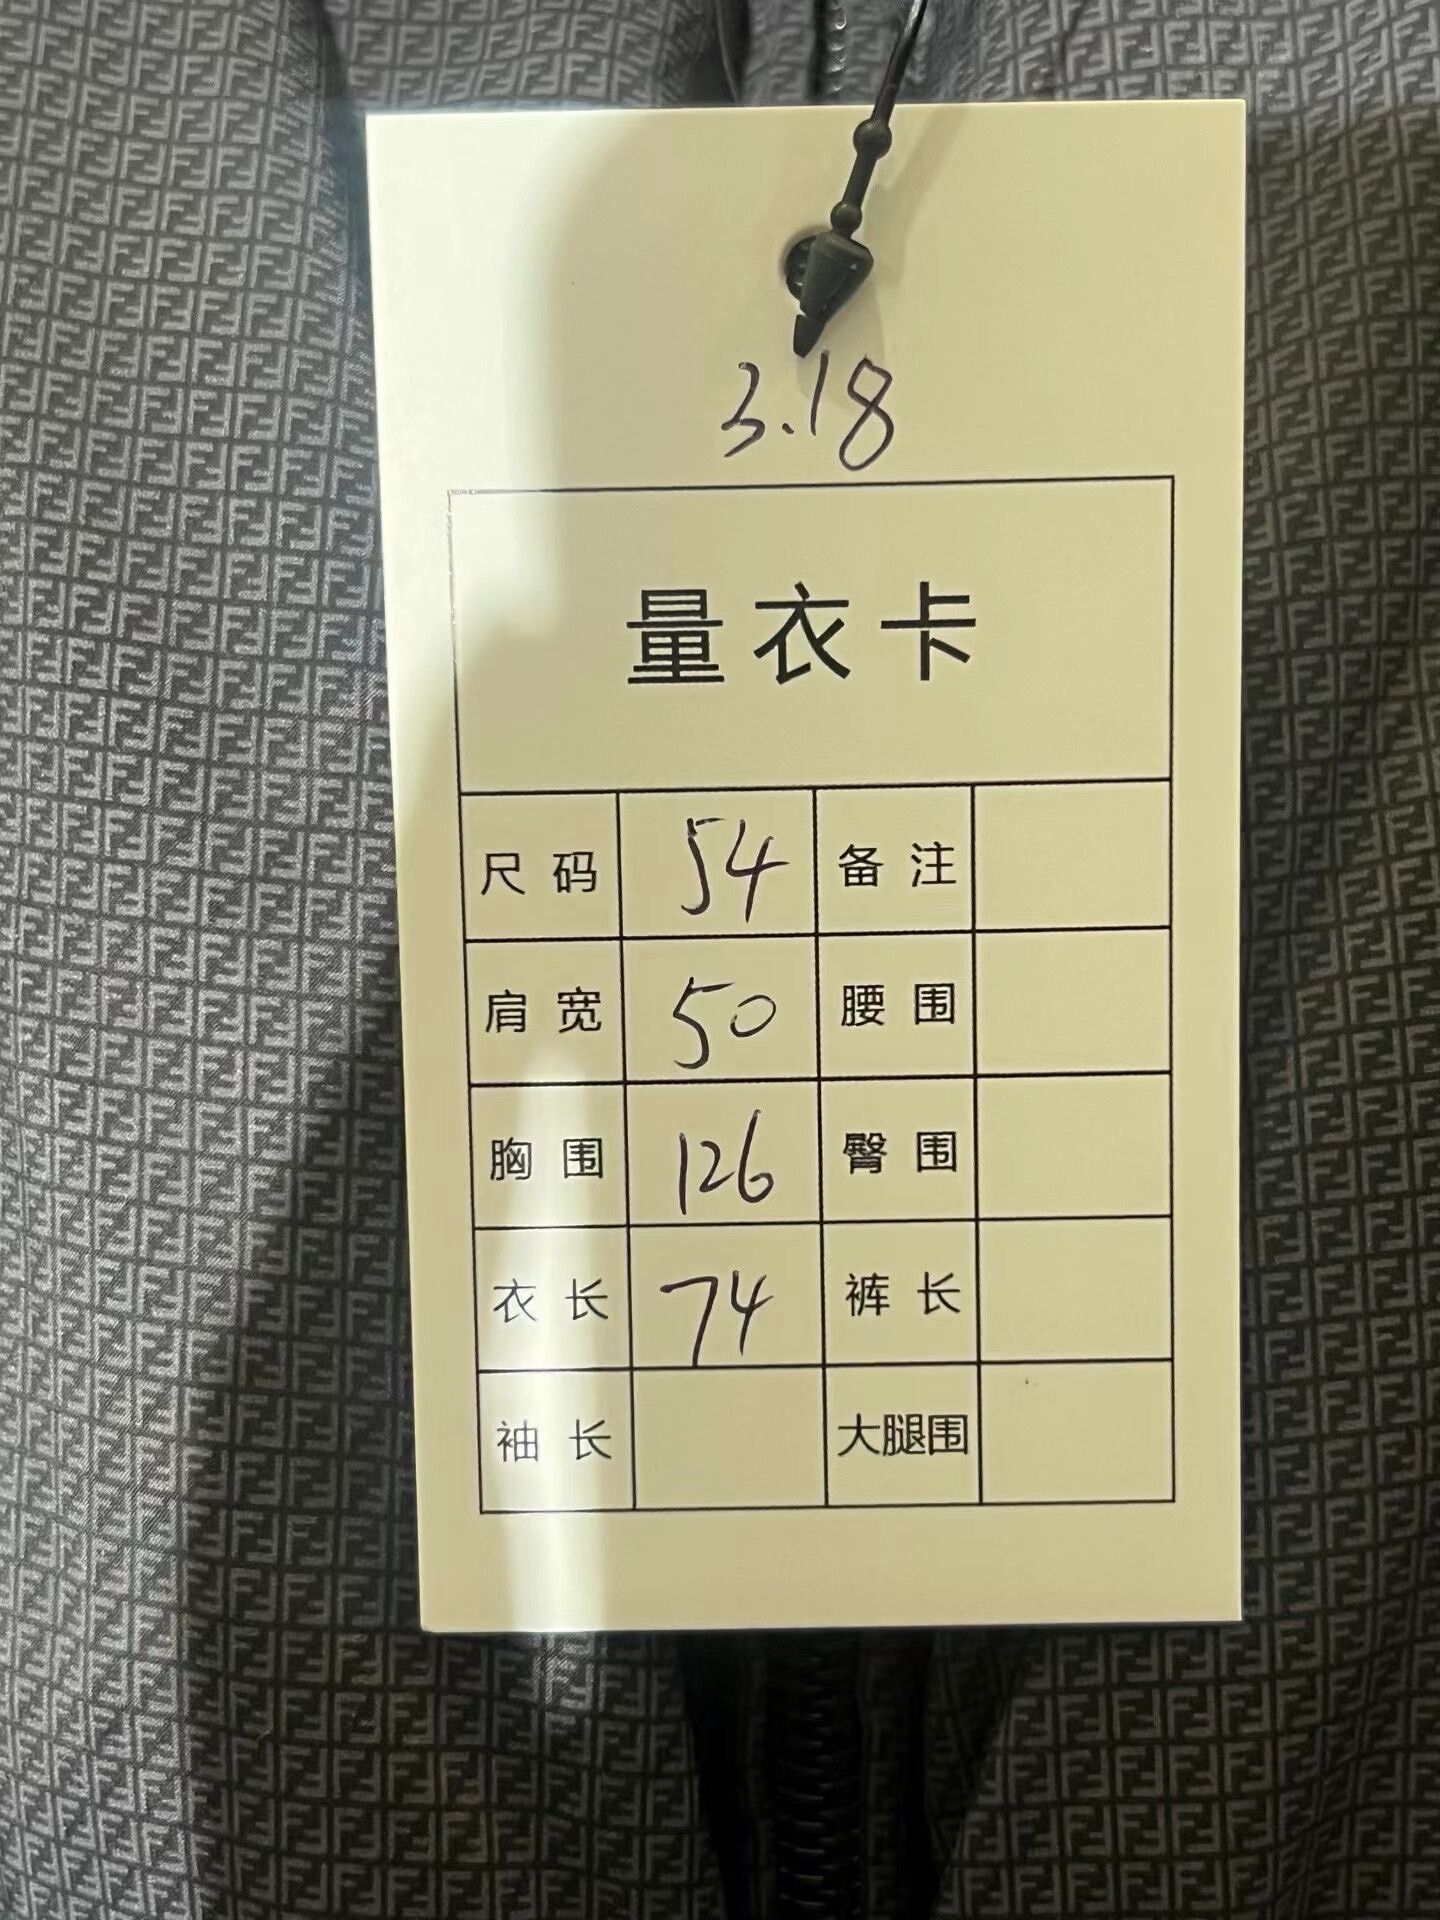 3.18
量衣卡
尺码 54 备注
肩宽 50 腰围
胸围 126 臀围
衣长 74 裤长
袖长 大腿围